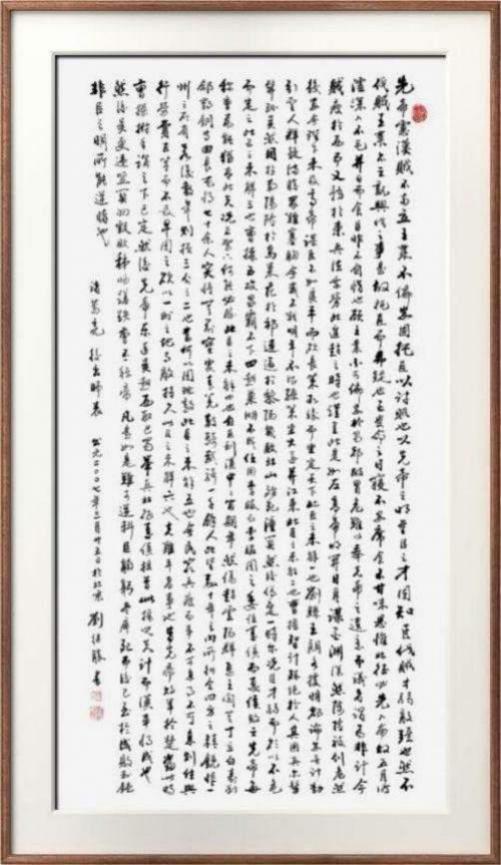 先帝慮漢賊不兩立王業不偏安故托臣以討賊也以先帝之明量臣之才固知臣伐賊才弱敵強也然不
伐賊王業亦亡孰與伐之是故托臣而弗疑也臣受命之日寢不安席食不甘味思惟北征宜先入南故五月渡
瀘深入不毛并日而食臣非不自惜也顧王業不可偏安於蜀都故冒危難以奉先帝之遺意而議者謂為非計今
賊適疲於西又務於東兵法乘勞此進趨之時也謹陳其事如左高帝明並日月謀臣淵深然涉險被創危然
後安今陛下未及高帝謀臣不如良平而欲以長策取勝坐定天下此臣之未解一也劉繇王朗各據州郡論安言計動
引聖人群疑滿腹眾難塞胸今歲不戰明年不征使孫策坐大遂并江東此臣之未解二也曹操智計殊絕於人其用兵也髣
髴孫吳然困於南陽險於烏巢危於祁連逼於黎陽幾敗北山殆死潼關然後偽定一時爾況臣才弱而欲以不危
而定之此臣之未解三也曹操五攻昌霸不下四越巢湖不成任用李服而李服圖之委任夏侯而夏侯敗亡先帝每
稱操為能猶有此失況臣駑下何能必勝此臣之未解四也自臣到漢中中間期年耳然喪趙雲陽群馬玉閻芝丁立白壽劉
郃鄧銅等曲長屯將七十餘人突將無前賨叟青羌散騎武騎一千餘人此皆數十年之內所糾合四方之精銳非一
州之所有若復數年則損三分之二也當何以圖敵此臣之未解五也今民窮兵疲而事不可息事不可息則住與
行勞費正等而不及早圖之欲以一州之地與賊持久此臣之未解六也夫難平者事也昔先帝敗軍於楚當此時
曹操拊手謂天下已定然後先帝東連吳越西取巴蜀舉兵北征夏侯授首此操之失計而漢事將成也
然後吳更違盟關羽毀敗秭歸蹉跌曹丕稱帝凡事如是難可逆料臣鞠躬盡瘁死而後已至於成敗利鈍
非臣之明所能逆睹也
諸葛亮 後出師表 公元二〇〇七年三月廿五日於北京 劉 勝書